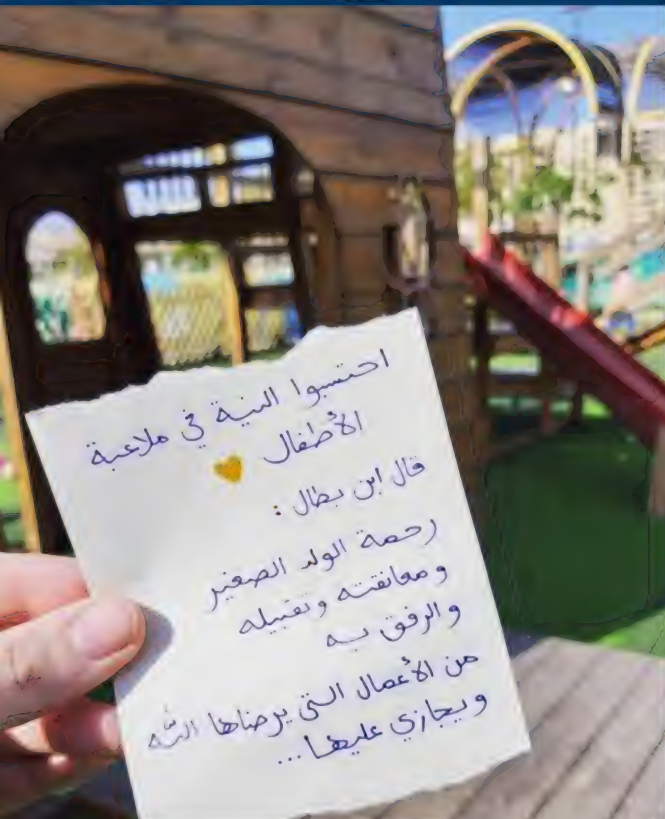 احتسبوا النية في ملاعبة
الأطفال 💛
قال ابن بطال :
رحمة الولد الصغير
ومعانقته وتقبيله
والرفق به
من الأعمال التي يرضاها الله
ويجازي عليها...